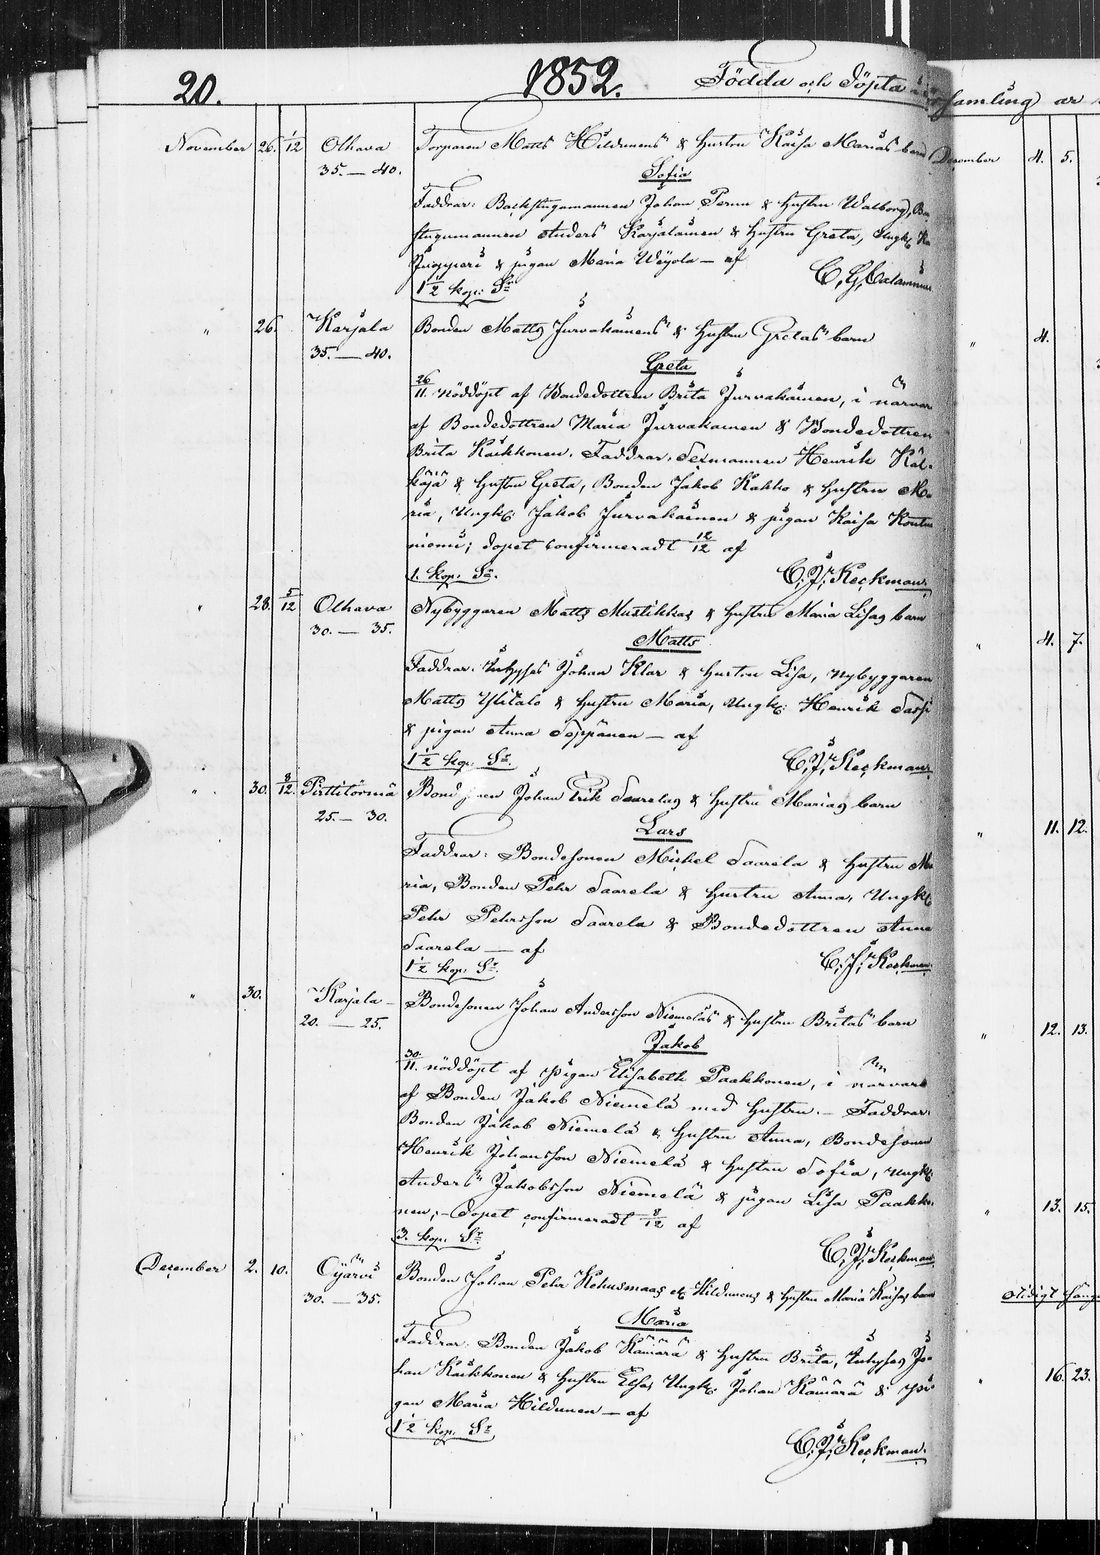 20. 1852. Födda och Döpta
församling år
November 26. 1/12 Olhava Torparen Matts Hildunens & hustru Kaisa Marias barn
35.—40. Sofia
Faddrar: Backstugumannen Johan Perun & hustru Walborg, Ba
stugumannen Anders Karjalainen & hustru Greta, Ungk.
& pigan Maria Weyola — af
1½ kop. Sr. C. G. Calamnius
" 26. Karjala Bonden Matts Jurvakainens & hustru Gretas barn
35.—40. Greta
26/11. nöddöpt af Bondedottren Brita Jurvakainen, i närvar
af Bondedottren Maria Jurvakainen & Bondedottren
Brita Kaikkonen. Faddrar: Sexmannen Henrik Käl-
käjä & hustru Greta, Bonden Jakob Kakko & hustru Ma-
ria, Ungk. Jakob Jurvakainen & pigan Kaisa Kontu
niemi; dopet confirmeradt 12/12 af
1. kop. Sr. C. J. Keckman.
" 28. 5/12 Olhava Nybyggaren Matts Mustikkas & hustru Maria Lisas barn
30.—35. Matts
Faddrar: Inhyses Johan Klar & hustru Lisa, nybyggaren
Matts Ylitalo & hustru Maria, Ungk. Henrik Sassi
& pigan Anna Seppänen — af
1½ kop. Sr. C. J. Keckman.
" 30. 8/12 Pirttitörmä Bondesonen Johan Erik Saarelas & hustru Marias barn
25.—30. Lars
Faddrar: Bondesonen Michel Saarela & hustru Ma
ria, Bonden Pehr Saarela & hustru Anna, Ungk.
Pehr Pehrsson Saarela & Bondedottren Anna
Saarela — af
1½ kop. Sr. C. J. Keckman
" 30. Karjala Bondesonen Johan Andersson Niemeläs & hustru Britas barn
20.—25. Jakob
30/11. nöddöpt af pigan Elisabeth Paakkonen, i närvaro
af Bonden Jakob Niemelä med hustru. — Faddrar:
Bonden Jakob Niemelä & hustru Anna, Bondesonen
Henrik Johansson Niemelä & hustru Sofia, Ungk.
Anders Jakobsson Niemelä & pigan Lisa Paakko-
nen; — dopet confirmeradt 8/12 af
3. kop. Sr. C. J. Keckman
December 2. 10. Oijärvi Bonden Johan Pehr Kehusmaas el. Hildunens & hustru Maria Kaisas barn
30.—35. Maria
Faddrar: Bonden Jakob Kämärä & hustru Brita, Inhyses Jo-
han Kaikkonen & hustru Elsa, Ungk. Johan Kämärä & pi-
gan Maria Hildunen — af
1½ kop. Sr. C. J. Keckman.
December 4. 5.
" 4.
" 4. 7.
" 11. 12.
" 12. 13.
" 13. 15.
" 16. 23.